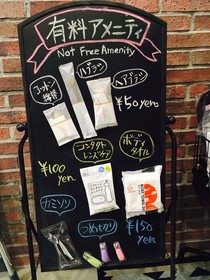 有料アメニティ
Not Free Amenity
ハブラシ
コットン
綿棒
ヘアブラシ
¥50yen
コンタクト
レンズケア
ボディ
タオル
¥100
yen
カミソリ
つめきり
¥150
yen